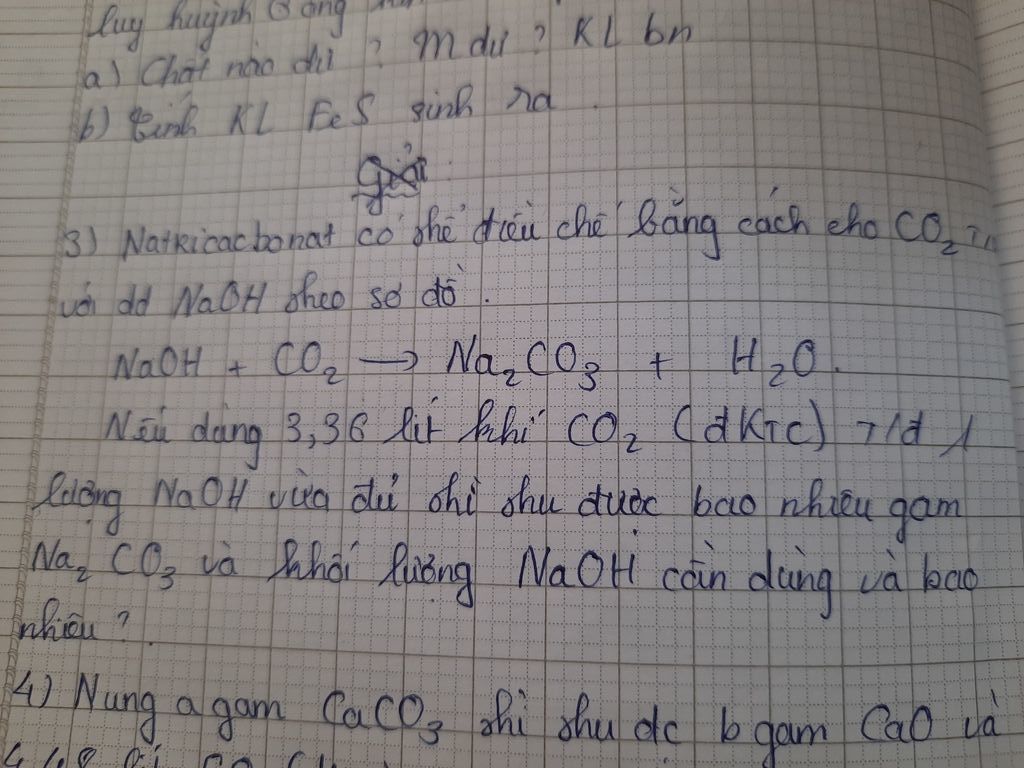 luy huỳnh trong
a) Chất nào dư ? m dư ? KL bn
b) tính KL FeS sinh ra.
giải:
3) Natricacbonat có thể điều chế bằng cách cho CO₂
với dd NaOH theo sơ đồ.
NaOH + CO₂ → Na₂CO₃ + H₂O.
Nếu dùng 3,36 lít khí CO₂ (đKTC) T/d 1
lượng NaOH vừa đủ thì thu được bao nhiêu gam
Na₂CO₃ và khối lượng NaOH cần dùng và bao
nhiêu ?
4) Nung a gam CaCO₃ thì thu dc b gam CaO và